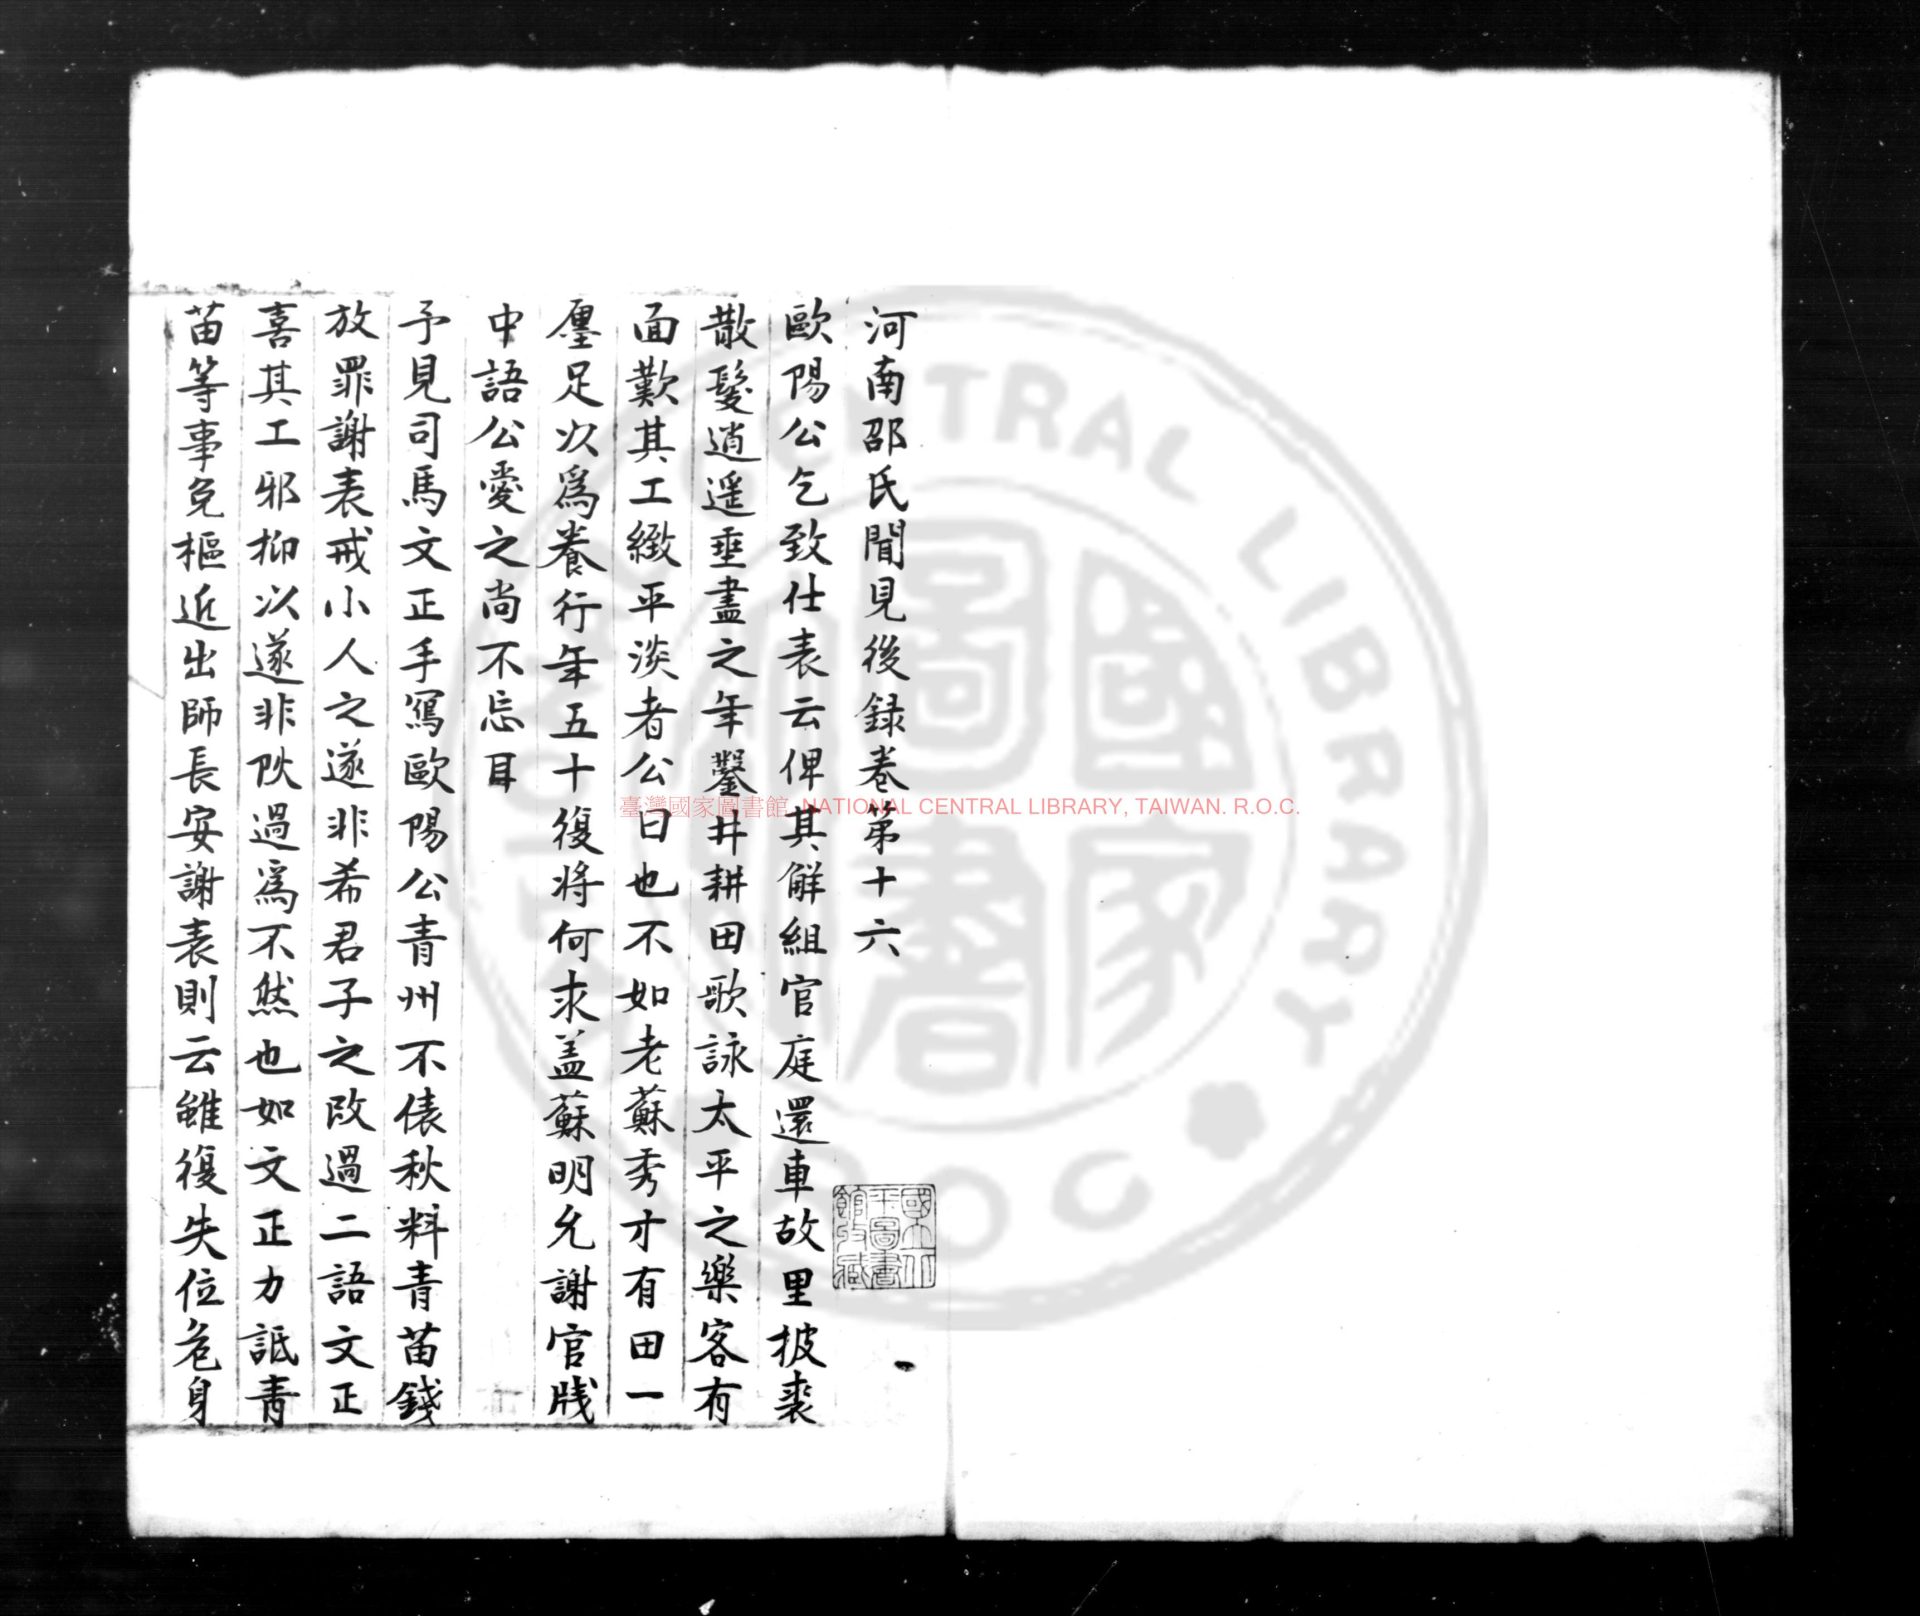 河南邵氏聞見後録卷第十六
歐陽公乞致仕表云俾其解組官庭還車故里披裘
散髮逍遥垂盡之年鑿井耕田歌詠太平之樂客有
面歎其工緻平淡者公曰也不如老蘇秀才有田一
廛足以爲養行年五十復將何求盖蘇明允謝官牋
中語公愛之尚不忘耳
予見司馬文正手寫歐陽公青州不俵秋料青苗錢
放罪謝表戒小人之遂非希君子之改過二語文正
喜其工邪抑以遂非攽過爲不然也如文正力詆青
苗等事免樞近出師長安謝表則云雖復失位危身
國立中
央圖書
館收藏
臺灣國家圖書館, NATIONAL CENTRAL LIBRARY, TAIWAN. R.O.C.
CENTRAL LIBRARY
R.O.C.
國家
圖書